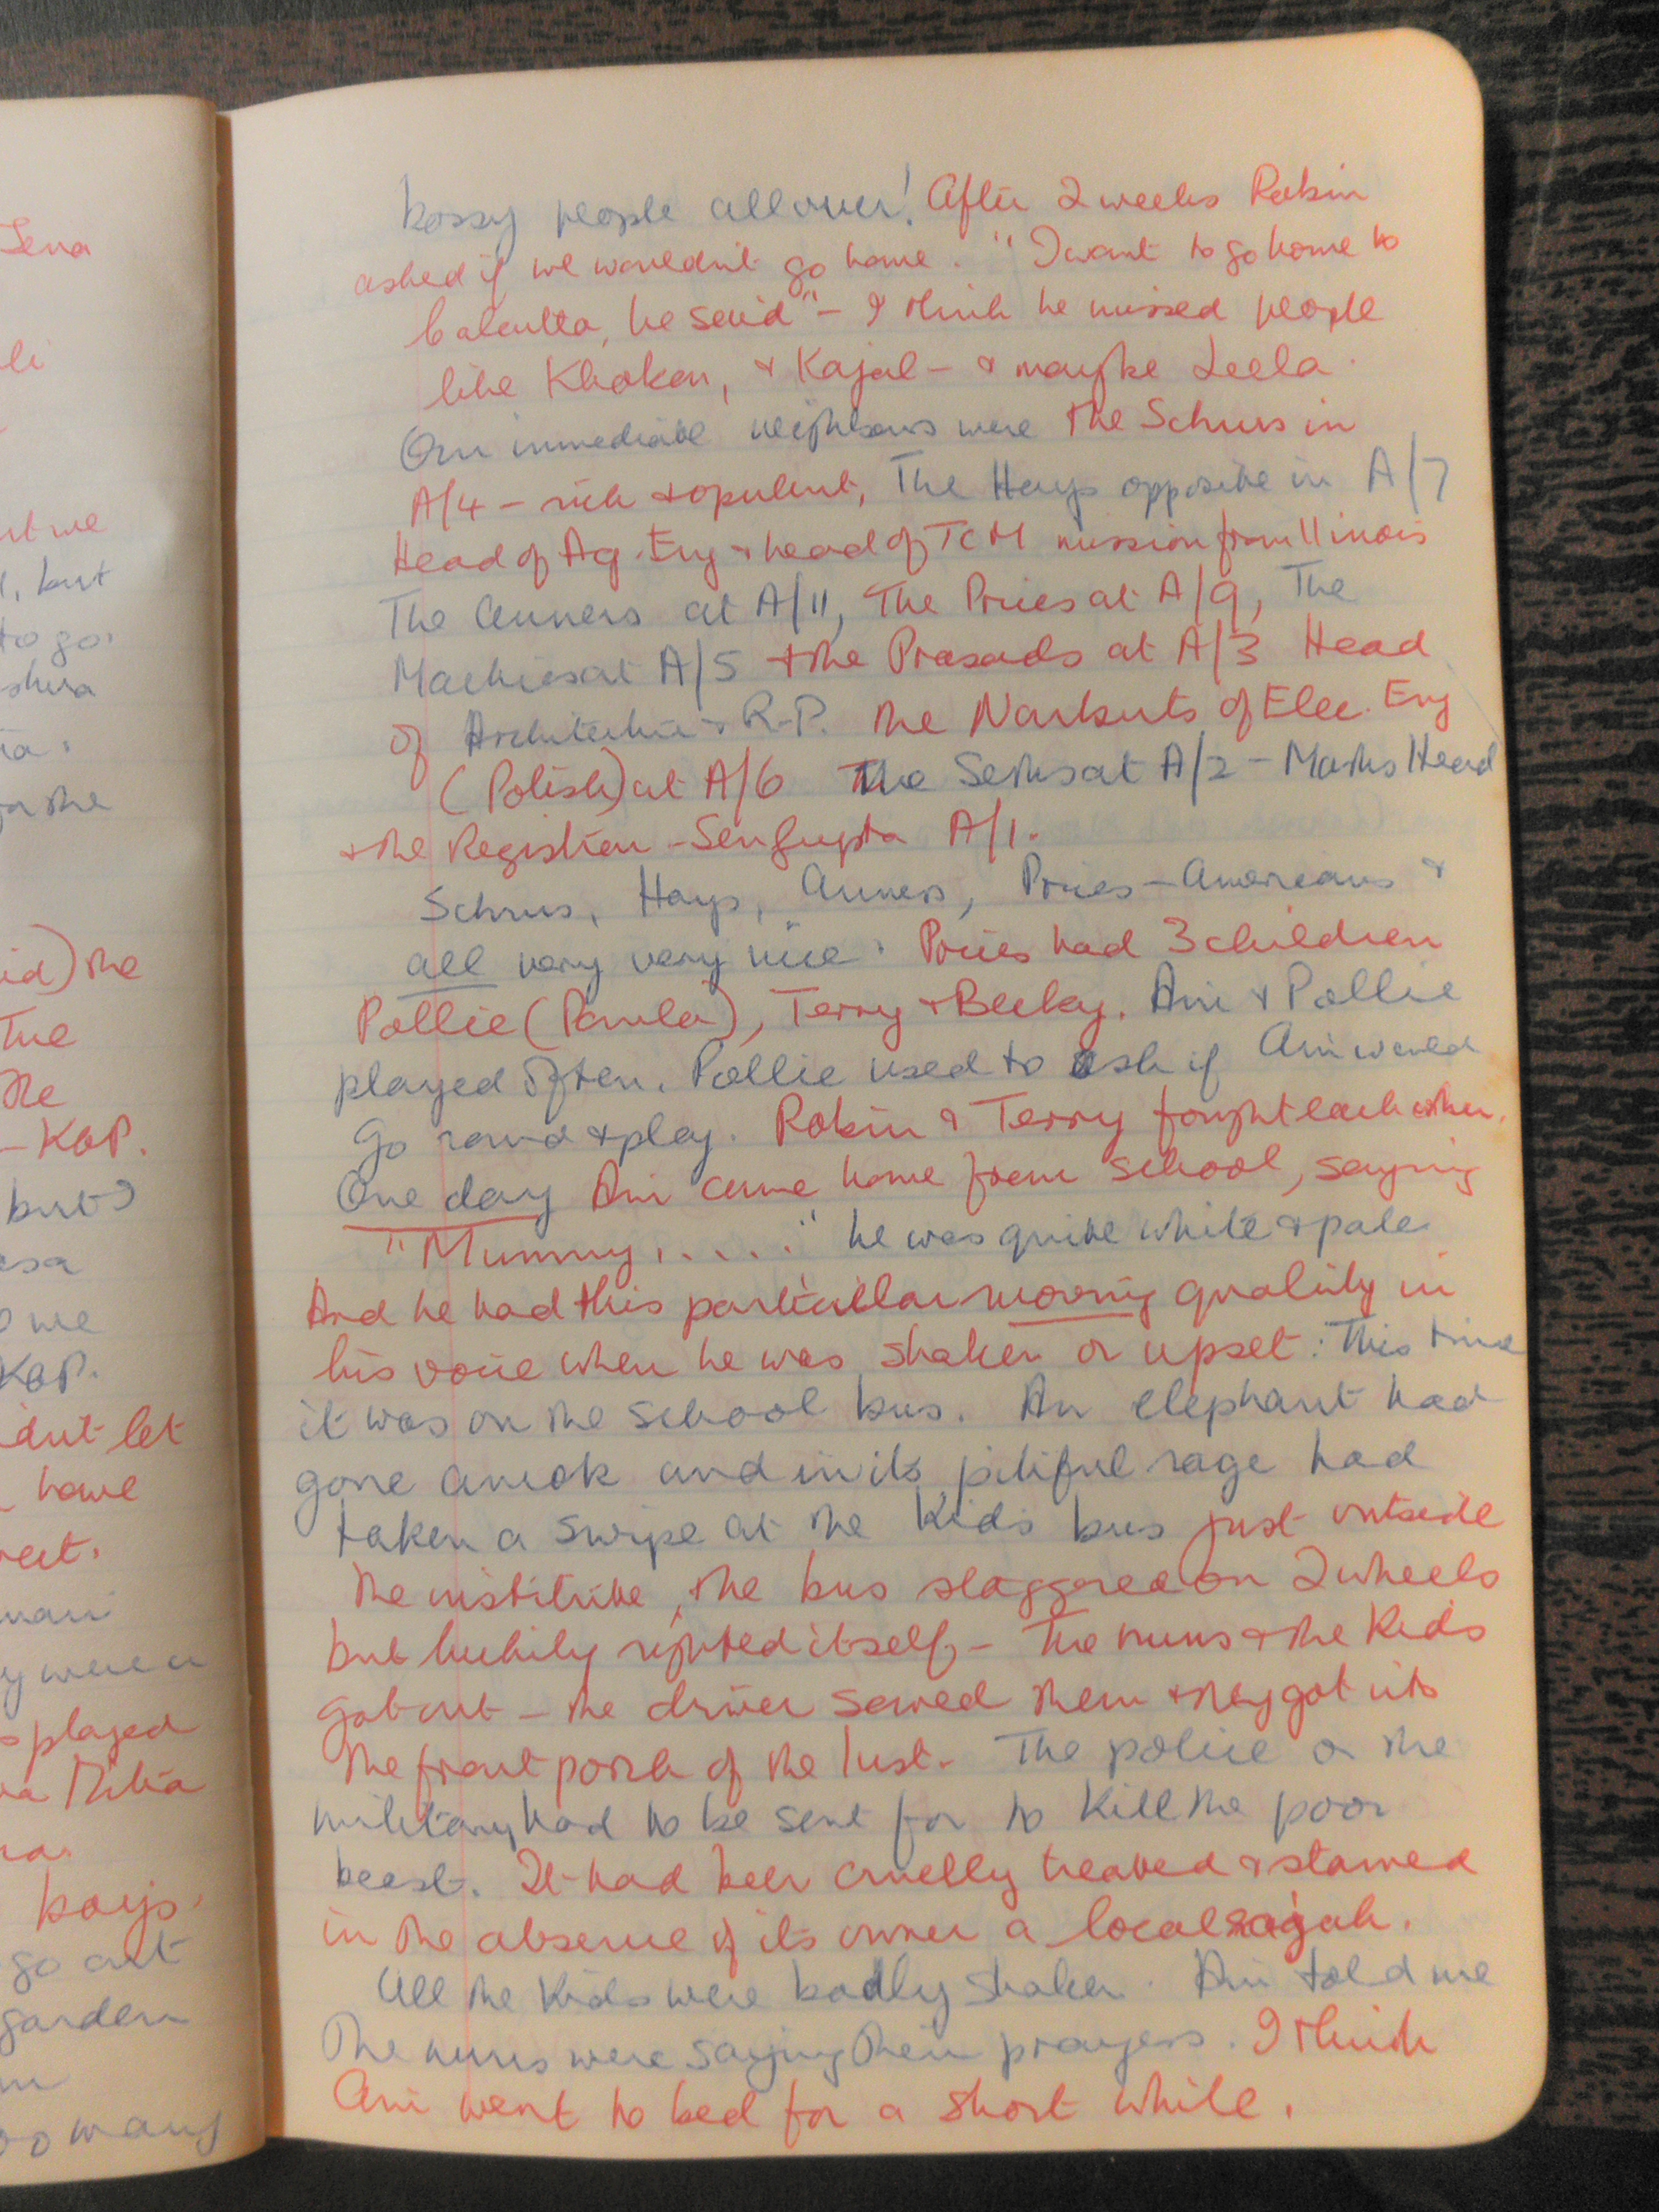 Lena
li
rt we
l, but
to go.
shwa
ia.
n the
id) the
The
The
- KGP.
but
esa
we
KGP.
dn't let
have
eet.
mani
y were a
played
boys.
go out
garden
oo many
bossy people all over! After 2 weeks Robin
asked if we wouldn't go home. "I want to go home to
Calcutta, he said" - I think he missed people
like Khokon, & Kajal - & maybe Leela.
Our immediate neighbours were the Schrus in
A/4 - rich & opulent, The Hays opposite in A/7
Head of Ag. Eng & head of TCM mission from Illinois
The Anners at A/11, The Prices at A/9, The
Mackies at A/5 & the Prasads at A/3 Head
of Architecture & R.P. The Narbuts of Elec. Eng
(Polish) at A/6 The Seths at A/2 - Maths Head
& the Registrar - Sengupta A/1.
Schrus, Hays, Anners, Prices - Americans &
all very very nice. Prices had 3 children
Pollie (Paula), Terry & Becky. Ani & Pollie
played often. Pollie used to ask if Ani would
Go round & play. Robin & Terry fought each other.
One day Ani came home from school, saying
"Mummy, . . . ." he was quite white & pale
And he had this particular moving quality in
his voice when he was shaken or upset: This time
it was on the school bus. An elephant had
gone amok and in its pitiful rage had
taken a swipe at the Kids bus just outside
the institute, the bus staggered on 2 wheels
but luckily righted itself, - The nuns & the Kids
got out - the driver saved them & they got into
the front porch of the Inst. The police or the
military had to be sent for to Kill the poor
beast. It had been cruelly treated & starved
in the absence of its owner a local rajah.
All the Kids were badly shaken. Ani told me
The nuns were saying their prayers. I think
Ani went to bed for a short while.